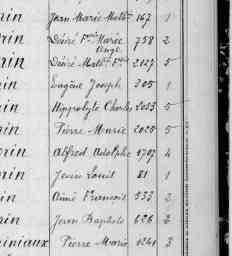 rin Jean Marie Math.. 167 1
orin Désiré Fçois Marie 758 2
Ange
rin Désiré Math. Fs. 2127 5
rin Eugène Joseph 305 1
rin Hippolyte Charles 2053 5
rin Pierre Marie 2025 5
orin Alfred Adolphe 1707 4
orin Jean Louis 81 1
orin Aimé François 553 2
orin Jean Baptiste 676 2
iniaux Pierre Marie 1241 3